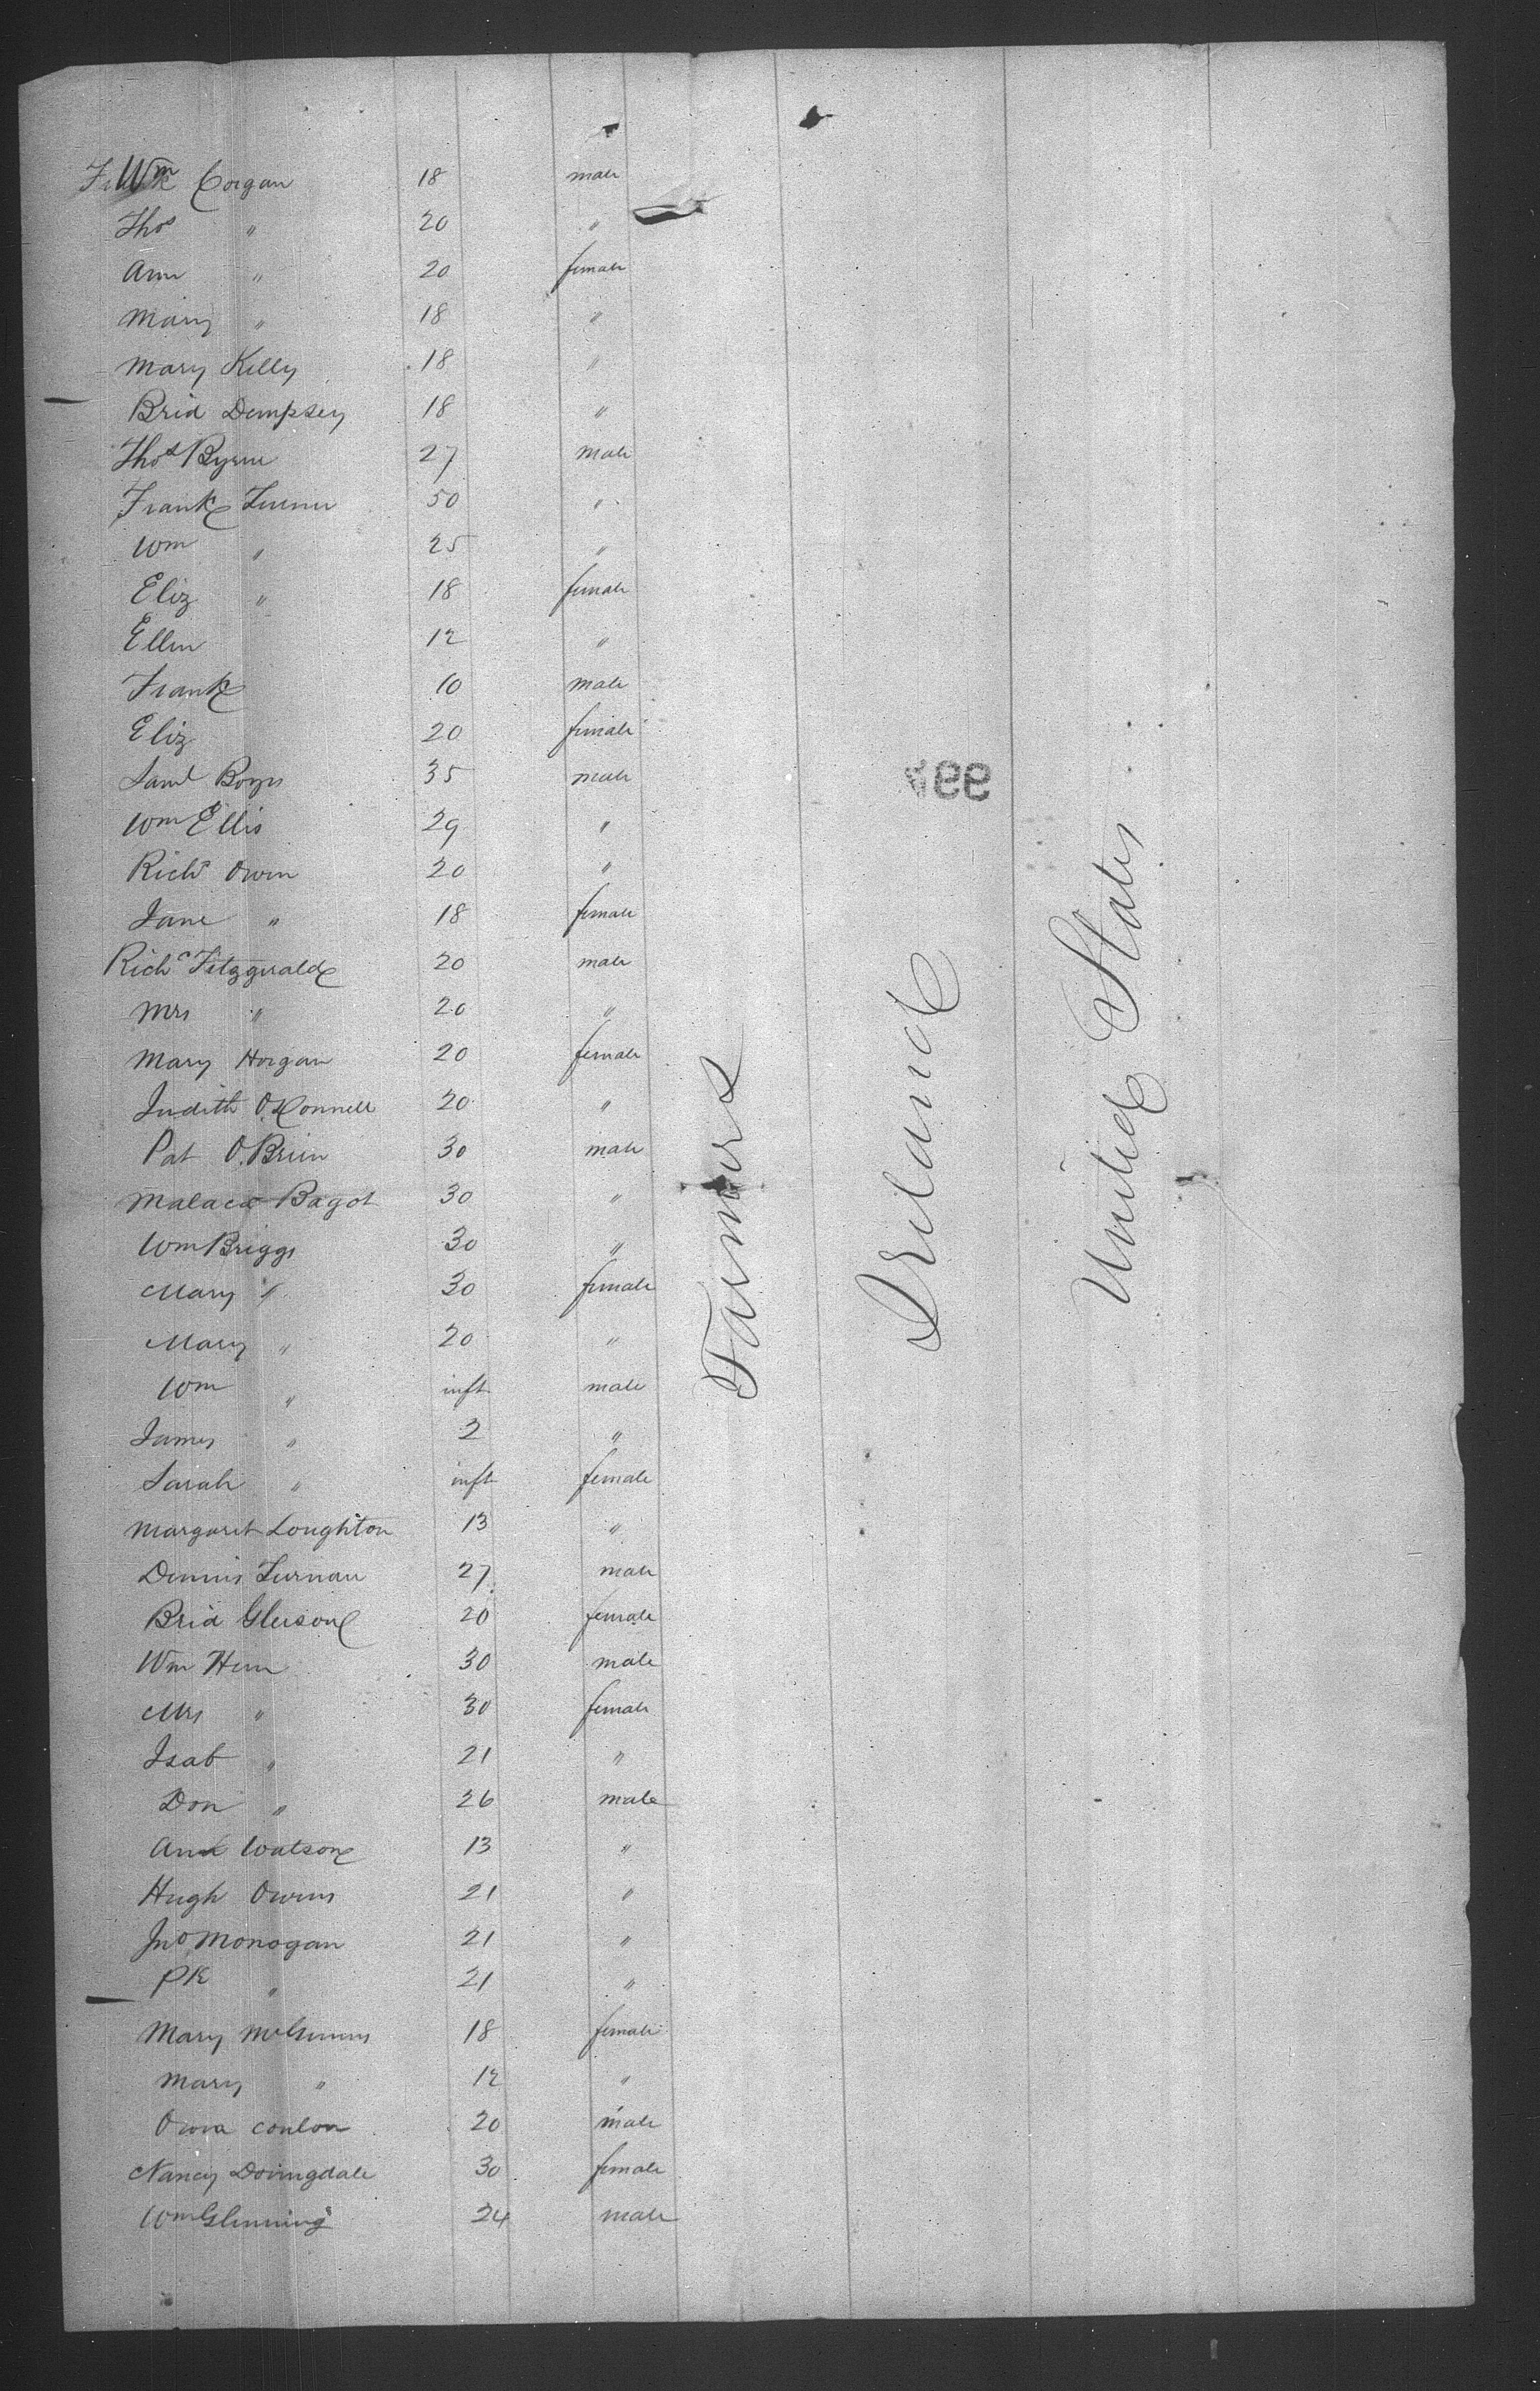 Wm Corgan 18 male
Thos " 20 "
Ann " 20 female
Mary " 18 "
Mary Kelly 18 "
Brid Dempsey 18 "
Thos Byrne 27 male
Frank Turner 50 "
Wm " 25 "
Eliz " 18 female
Ellen 12 "
Frank 10 male
Eliz 20 female
Saml 35 male
Wm Ellis 29 "
Richd Owen 20 "
Jane " 18 female
Richd Fitzgerald 20 male
Mrs " 20 "
Mary Horgan 20 female
Judith O.Connell 20 "
Pat O.Brien 30 male
Malaca Bagot 30 "
Wm Briggs 30 "
Mary " 30 female
Mary " 20 "
Wm " inft male
James " 2 "
Sarah " inft female
Margaret Loughton 13 "
Dennis 27 male
Brid Gleison 20 female
Wm 30 male
Mrs " 30 female
Isab " 21 "
Don " 26 male
Ann Watson 13 "
Hugh Owens 21 "
Jno Monogan 21 "
PK " 21 "
Mary 18 female
Mary " 12 "
Conlon 20 male
Nancy 30 female
Wm Glenning 24 male
Farmers
Ireland
United States
99